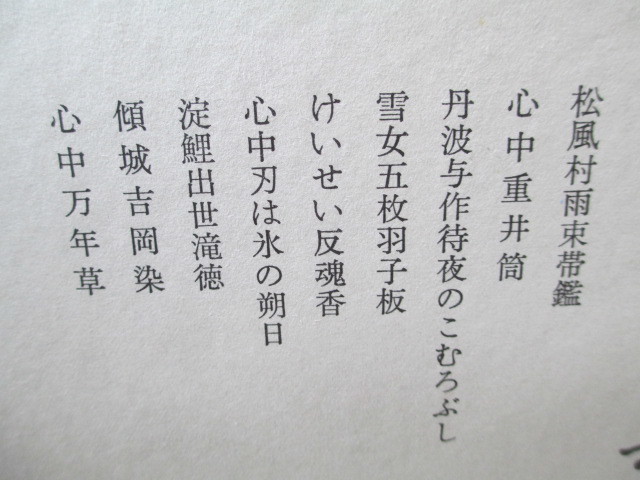 松風村雨束帯鑑
心中重井筒
丹波与作待夜のこむろぶし
雪女五枚羽子板
けいせい反魂香
心中刃は氷の朔日
淀鯉出世滝徳
傾城吉岡染
心中万年草